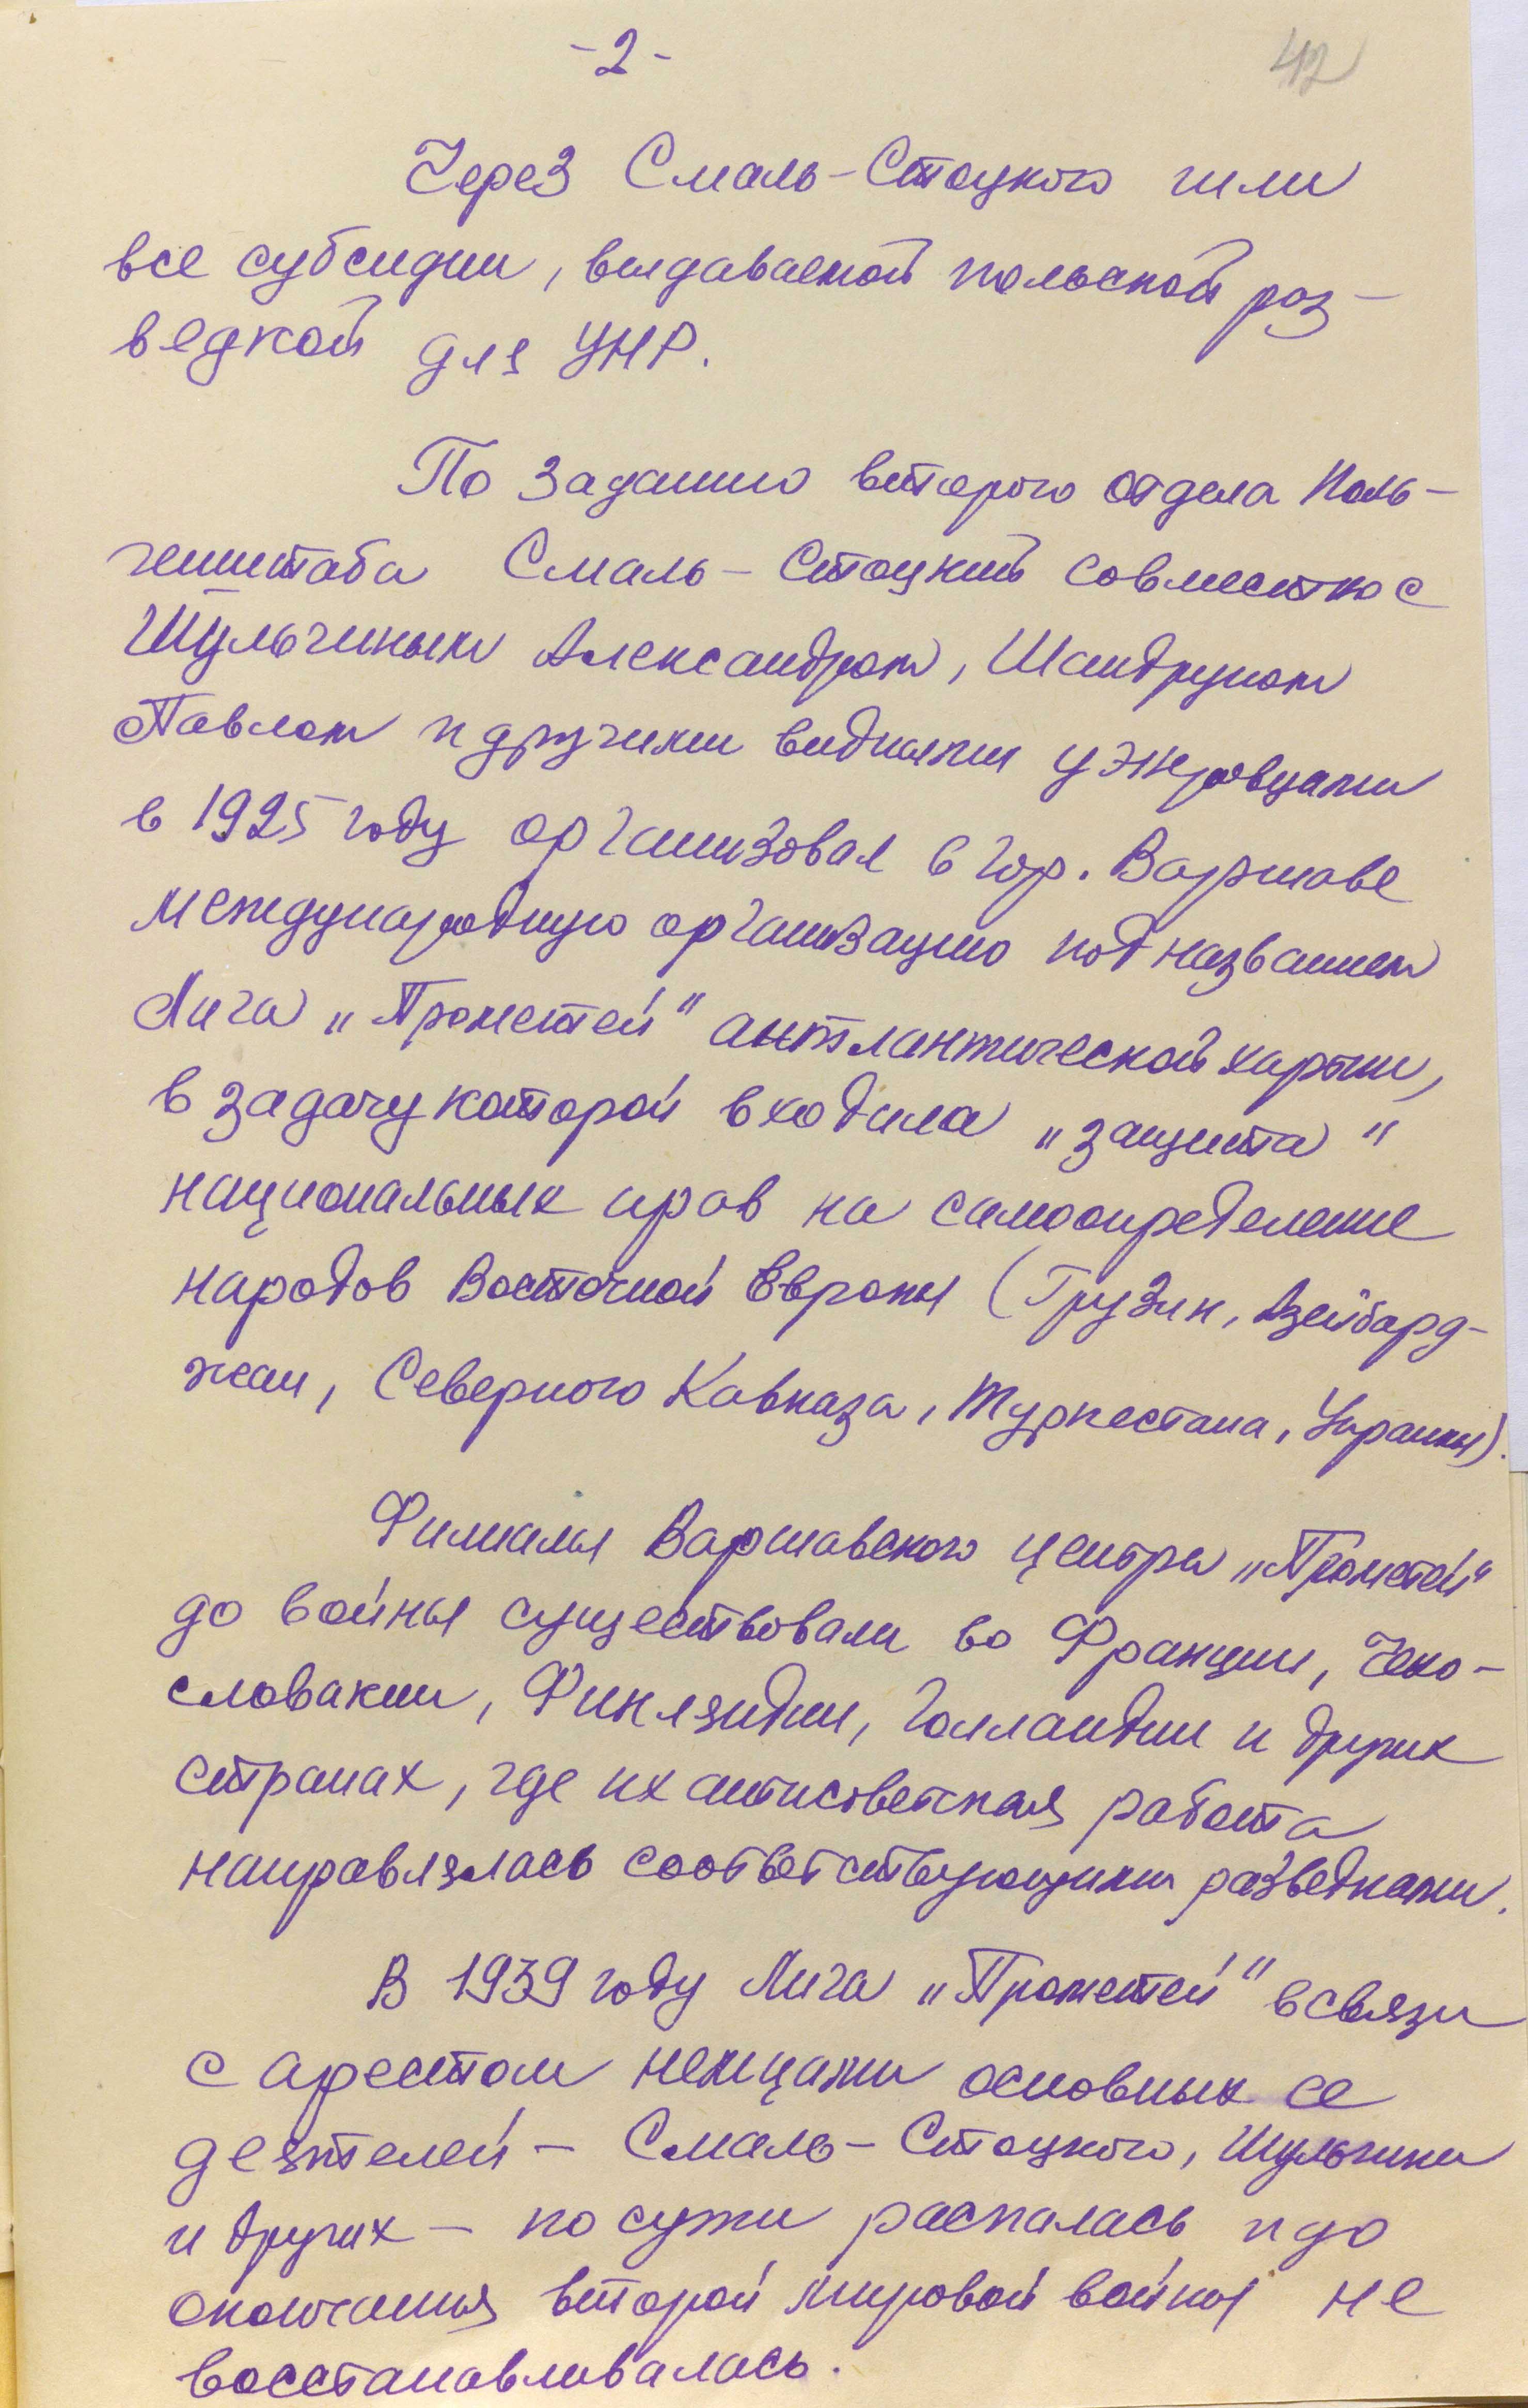 -2-
42
Через Смаль-Стоцкого шли
все субсидии, выдаваемой польской раз-
ведкой для УНР.
По заданию второго отдела Поль-
генштаба Смаль-Стоцкий совместно с
Шульгиным Александром, Шандруком
Павлом и другими видными уэнровцами
в 1925 году организовал в гор. Варшаве
международную организацию под названием
Лига „Прометей" антлантической хартии,
в задачу которой входила „защита"
национальных прав на самоопределение
народов Восточной Европы (Грузин, Азейбард-
жан, Северного Кавказа, Туркестана, Украины).
Филиалы Варшавского центра „Прометей"
до войны существовали во Франции, Чехо-
словакии, Финляндии, Голландии и других
странах, где их антисоветская работа
направлялась соответствующими разведками.
В 1939 году Лига „Прометей" в связи
с арестом немцами основных ее
деятелей - Смаль-Стоцкого, Шульгина
и других - по сути распалась и до
окончания второй мировой войны не
восстанавливалась.